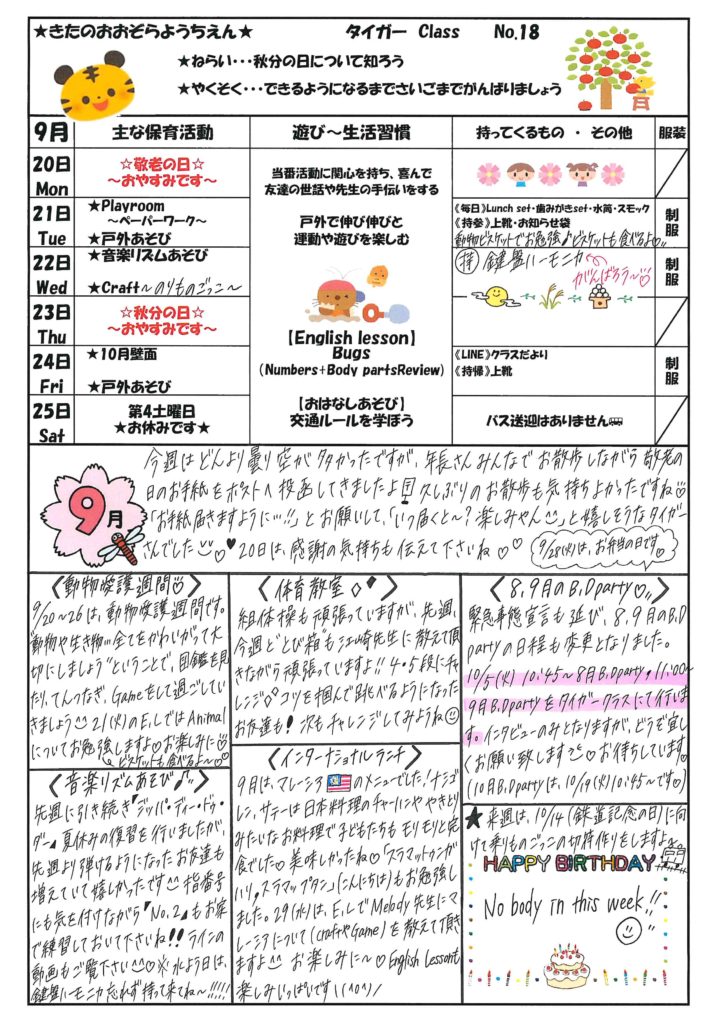 ★きたのおおぞらようちえん★ タイガー Class No.18
★ねらい･･･秋分の日について知ろう
★やくそく･･･できるようになるまでさいごまでがんばりましょう
9月 主な保育活動 遊び～生活習慣 持ってくるもの ・ その他 服装
20日 Mon
☆敬老の日☆
～おやすみです～
21日 Tue
★Playroom
～ペーパーワーク～
★戸外あそび
22日 Wed
★音楽リズムあそび
★Craft～のりものごっこ～
23日 Thu
☆秋分の日☆
～おやすみです～
24日 Fri
★10月壁面
★戸外あそび
25日 Sat
第4土曜日
★お休みです★
当番活動に関心を持ち、喜んで
友達の世話や先生の手伝いをする
戸外で伸び伸びと
運動や遊びを楽しむ
【English lesson】
Bugs
(Numbers+Body partsReview)
【おはなしあそび】
交通ルールを学ぼう
《毎日》Lunch set･歯みがきset･水筒・スモック
《持参》上靴・お知らせ袋
動物ビスケットでお勉強♪ビスケットも食べるよ♡
制服
持 鍵盤ハーモニカ
がんばろう～♡
制服
《LINE》クラスだより
《持帰》上靴
制服
バス送迎はありません
9月
今週はどんより曇り空が多かったですが、年長さんみんなでお散歩しながら敬老の
日のお手紙をポストへ投函してきましたよ 久しぶりのお散歩も気持ちよかったですね♡
「お手紙届きますように…!!」とお願いして、「いつ届くと～?楽しみやん^^」と嬉しそうなタイガー
さんでした♡♥ 20日は、感謝の気持ちも伝えて下さいね♡♡
9/28(火)は、お弁当の日です。
〈動物愛護週間♡〉
9/20～26は、動物愛護週間です。
"動物や生き物…全てをかわいがって大
切にしましょう"ということで、図鑑を見
たり、てんつなぎ、Gameをして過ごしてい
きましょう^^ 21(火)のE.LではAnimal
についてお勉強しますよ♡お楽しみに♡
ビスケットも食べるよ～♡
〈音楽リズムあそび♪〉
先週に引き続き『ジッパ・ディー・ドゥ・
ダー』夏休みの復習を行いましたが、
先週より弾けるようになったお友達も
増えていて嬉しかったです^^ 指番号
にも気を付けながら『No.2』もお家
で練習しておいて下さいね!! ラインの
動画もご覧下さい^^♡※水よう日は、
鍵盤ハーモニカ忘れず持って来てね～!!!!!
〈体育教室〉
組体操も頑張っていますが、先週、
今週と"とび箱"も江崎先生に教えて頂
きながら頑張っていますよ!! 4・5段にチャ
レンジ コツを掴んで跳べるようになった
お友達も! 次もチャレンジしてみようね
〈インターナショナルランチ〉
9月は、マレーシアのメニューでした!ナシゴ
レン、サテーは日本料理のチャーハンややきとり
みたいなお料理で子どもたちもモリモリと完
食でした♡美味しかったね♡「スラマットゥンガ
ハリ,スラマップタン」(こんにちは)もお勉強し
ました。29(水)は、E.LでMelody先生にマ
レーシアについて(craftやGame)を教えて頂き
ますよ^^ お楽しみに～♡English Lessonも
楽しみいっぱいです!(^o^)/
〈8,9月のB.Dparty♡〉
緊急事態宣言も延び、8,9月のB.D
partyの日程も変更となりました。
10/5(火) 10:45～8月B.Dparty,11:00～
9月B.Dpartyをタイガークラスにて行いま
す。インタビューのみとなりますが、どうぞ宜し
くお願い致します♡お待ちしています。
(10月B.Dpartyは、10/19(火)10:45～です♡)
★来週は、10/14(鉄道記念の日)に向
けて乗りものごっこの切符作りをしますよ。
HAPPY BIRTHDAY
No body in this week!!